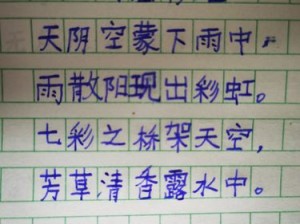 天阴空蒙下雨中，
雨散阳现出彩虹。
七彩之桥架天空，
芳草清香露水中。